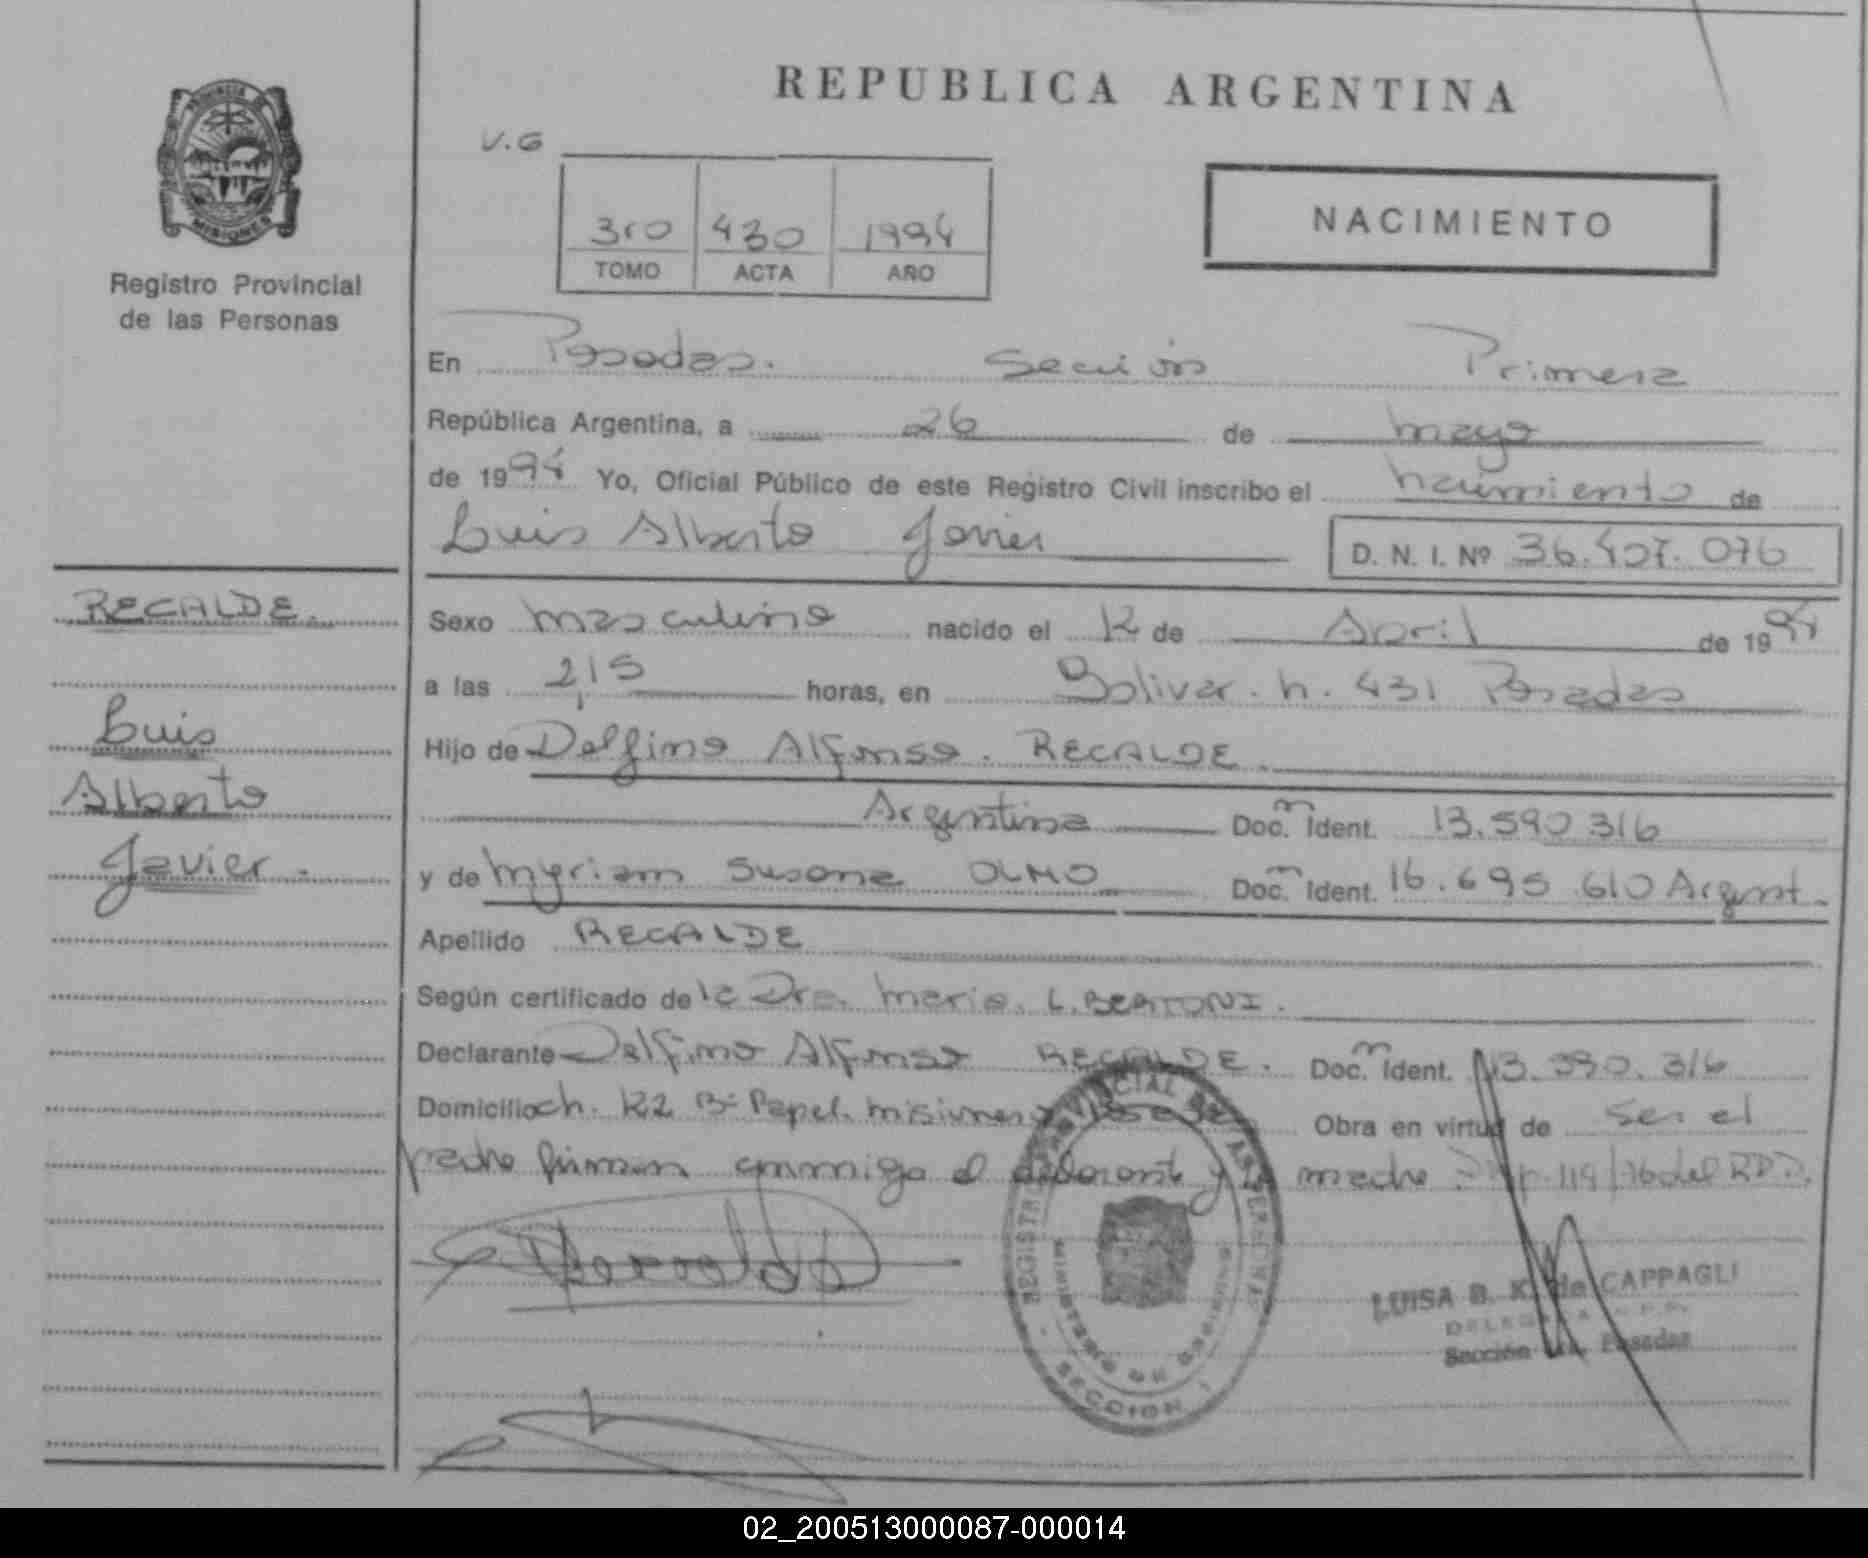 REPUBLICA ARGENTINA
PROVINCIA DE
MISIONES
Registro Provincial
de las Personas
V.G
3ro 430 1994
TOMO ACTA AÑO
NACIMIENTO
En Posadas. Sección Primera
República Argentina, a 26 de mayo
de 1994 Yo, Oficial Público de este Registro Civil inscribo el nacimiento de
Luis Alberto Javier
D. N. I. Nº 36.407.076
RECALDE.
Luis
Alberto
Javier.
Sexo masculino nacido el 12 de Abril de 1994
a las 2,15 horas, en Bolivar. n. 431 Posadas
Hijo de Delfino Alfonso. RECALDE.
Argentina Doc. Ident. 13.590.316
y de Myriam Susana OLMO Doc. Ident. 16.695.610 Argent.
Apellido RECALDE
Según certificado de la Dra. Maria. L. BERTONI.
Declarante Delfino Alfonso RECALDE. Doc. Ident. 13.590.316
Domicilio ch. 122 Bº Papel. misionero Obra en virtud de ser el
padre firman conmigo el declarante y la madre 119/76 del RDP.
REGISTRO PROVINCIAL DE LAS PERSONAS
MINISTERIO DE GOBIERNO
SECCION 1
LUISA B. K. de CAPPAGLI
DELEGADA R.P.P.
Sección Posadas
02_200513000087-000014